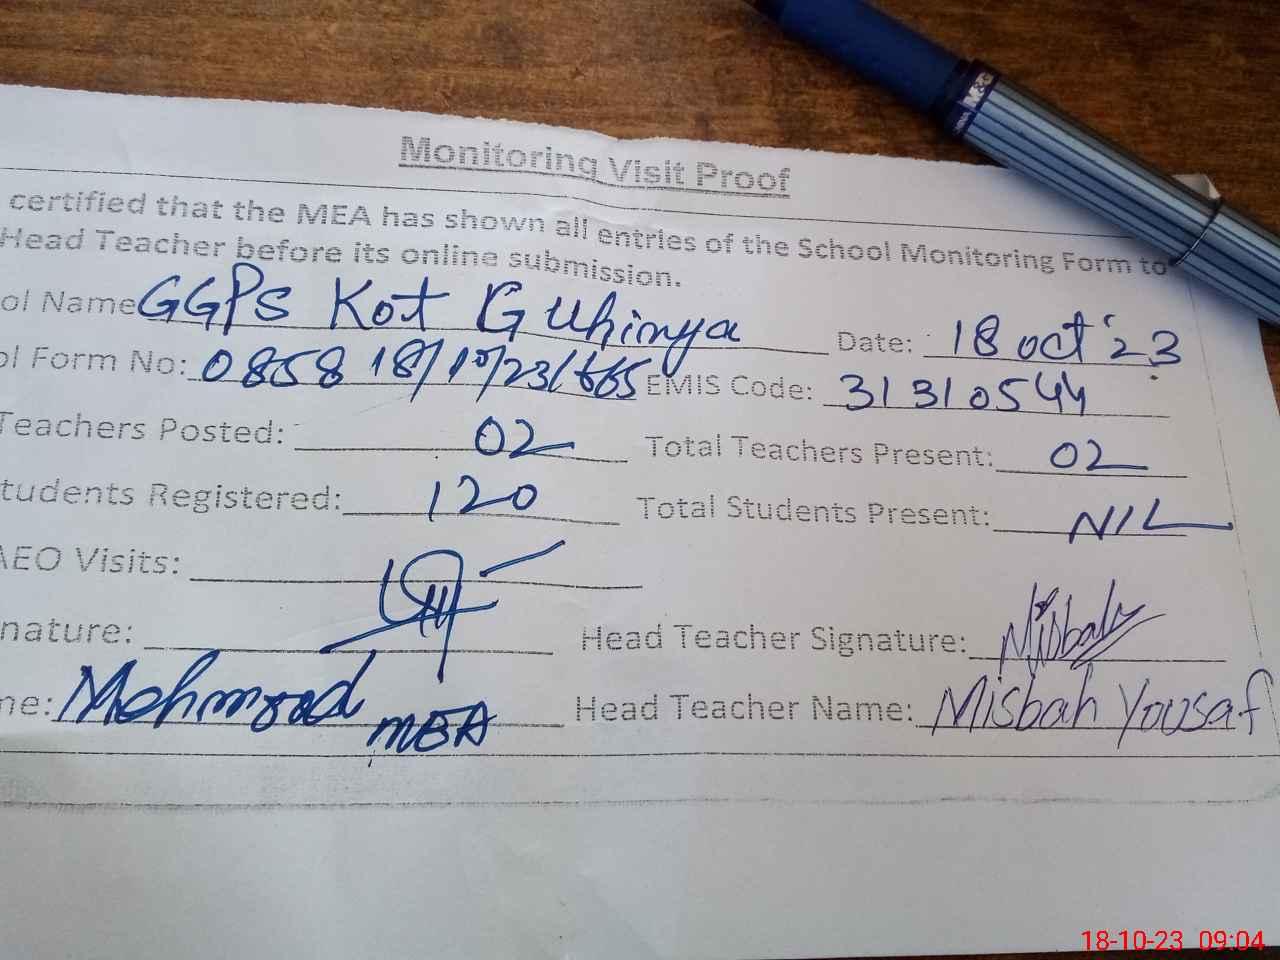 CHINA M&G
Monitoring Visit Proof
certified that the MEA has shown all entries of the School Monitoring Form to
Head Teacher before its online submission.
ol Name GGPS Kot Guhinya Date: 18 oct '23
ol Form No: 0858 18/10/23/ EMIS Code: 31310544
Teachers Posted: 02 Total Teachers Present: 02
tudents Registered: 120 Total Students Present: NIL
AEO Visits:
nature: Head Teacher Signature: Misbah
me: Mehmood MEA Head Teacher Name: Misbah Yousaf
18-10-23 09:04